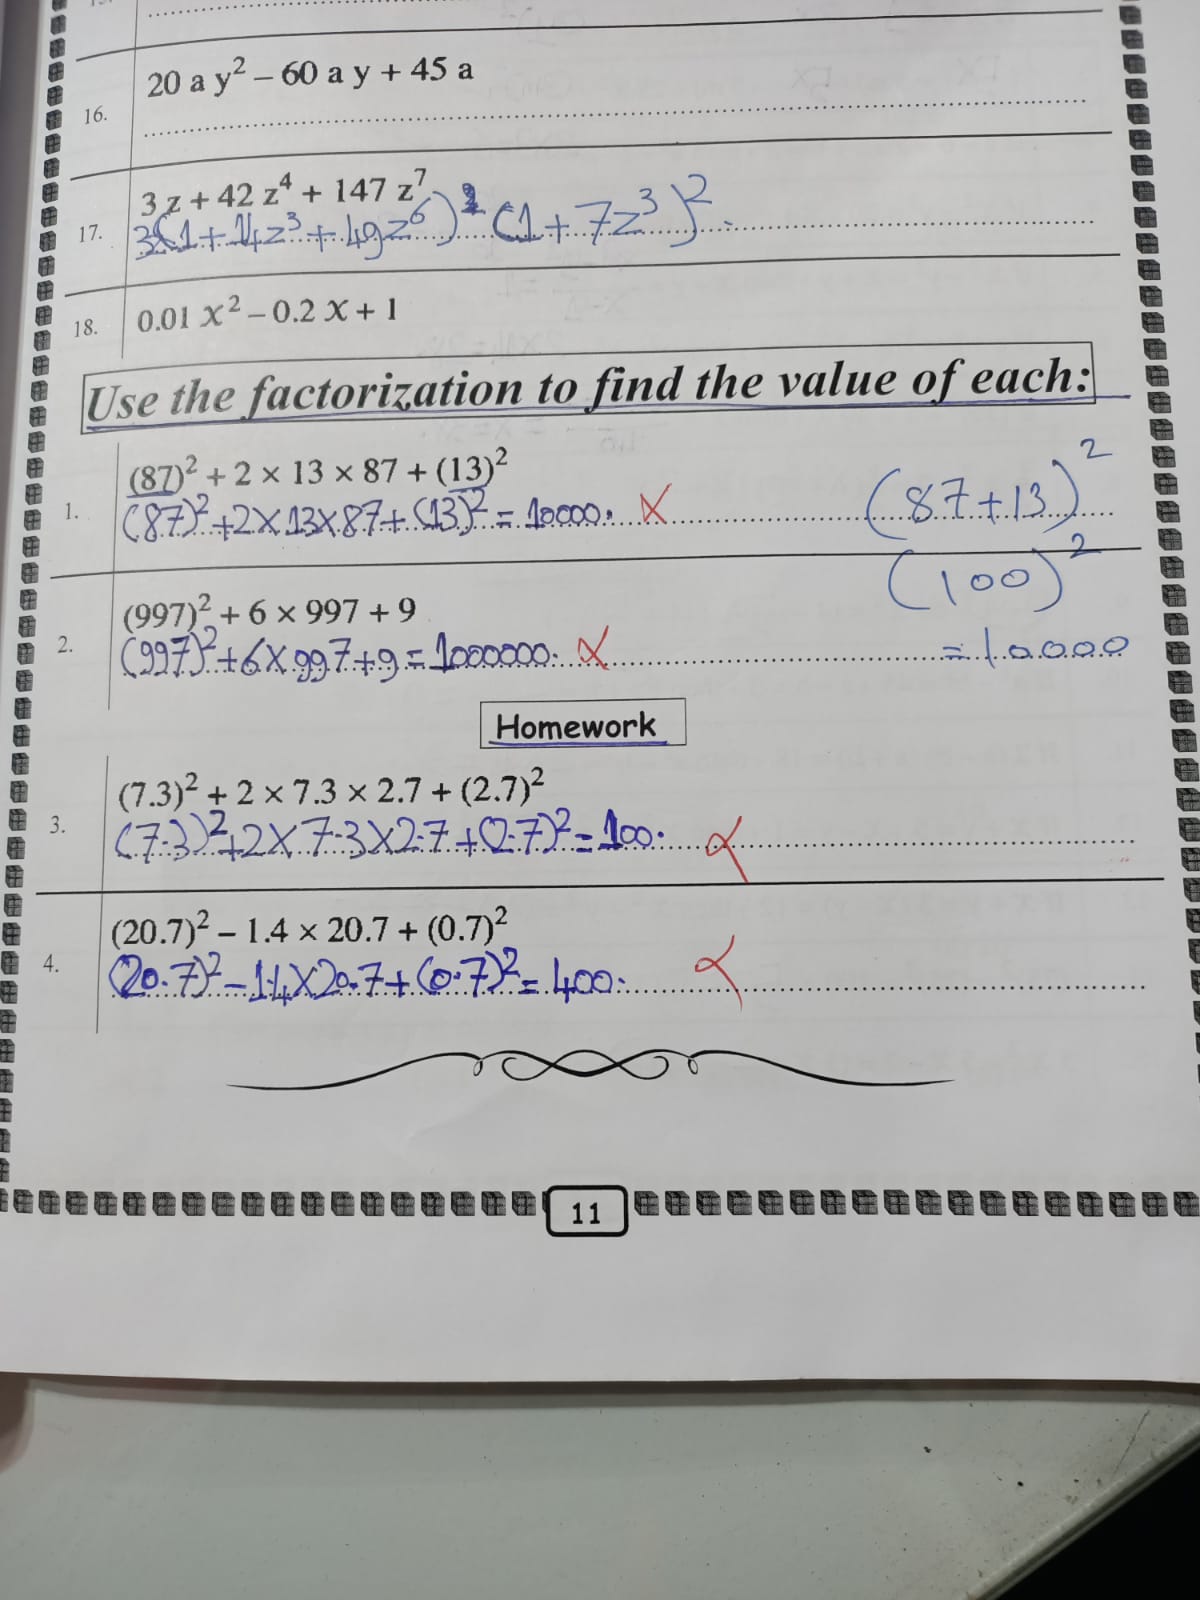 16. 20 a y² – 60 a y + 45 a
3 z + 42 z⁴ + 147 z⁷
17. 3(1+14z³+49z⁶) (1+7z³)².
18. 0.01 x² – 0.2 x + 1
Use the factorization to find the value of each:
(87)² + 2 × 13 × 87 + (13)²
1. (87)²+2×13×87+(13)²=10000. (87+13)²
(100)²
(997)² + 6 × 997 + 9
2. (997)²+6×997+9=1000000. =10000
Homework
(7.3)² + 2 × 7.3 × 2.7 + (2.7)²
3. (7.3)²+2×7.3×2.7+(2.7)²=100.
(20.7)² – 1.4 × 20.7 + (0.7)²
4. (20.7)²-1.4×20.7+(0.7)²=400.
11